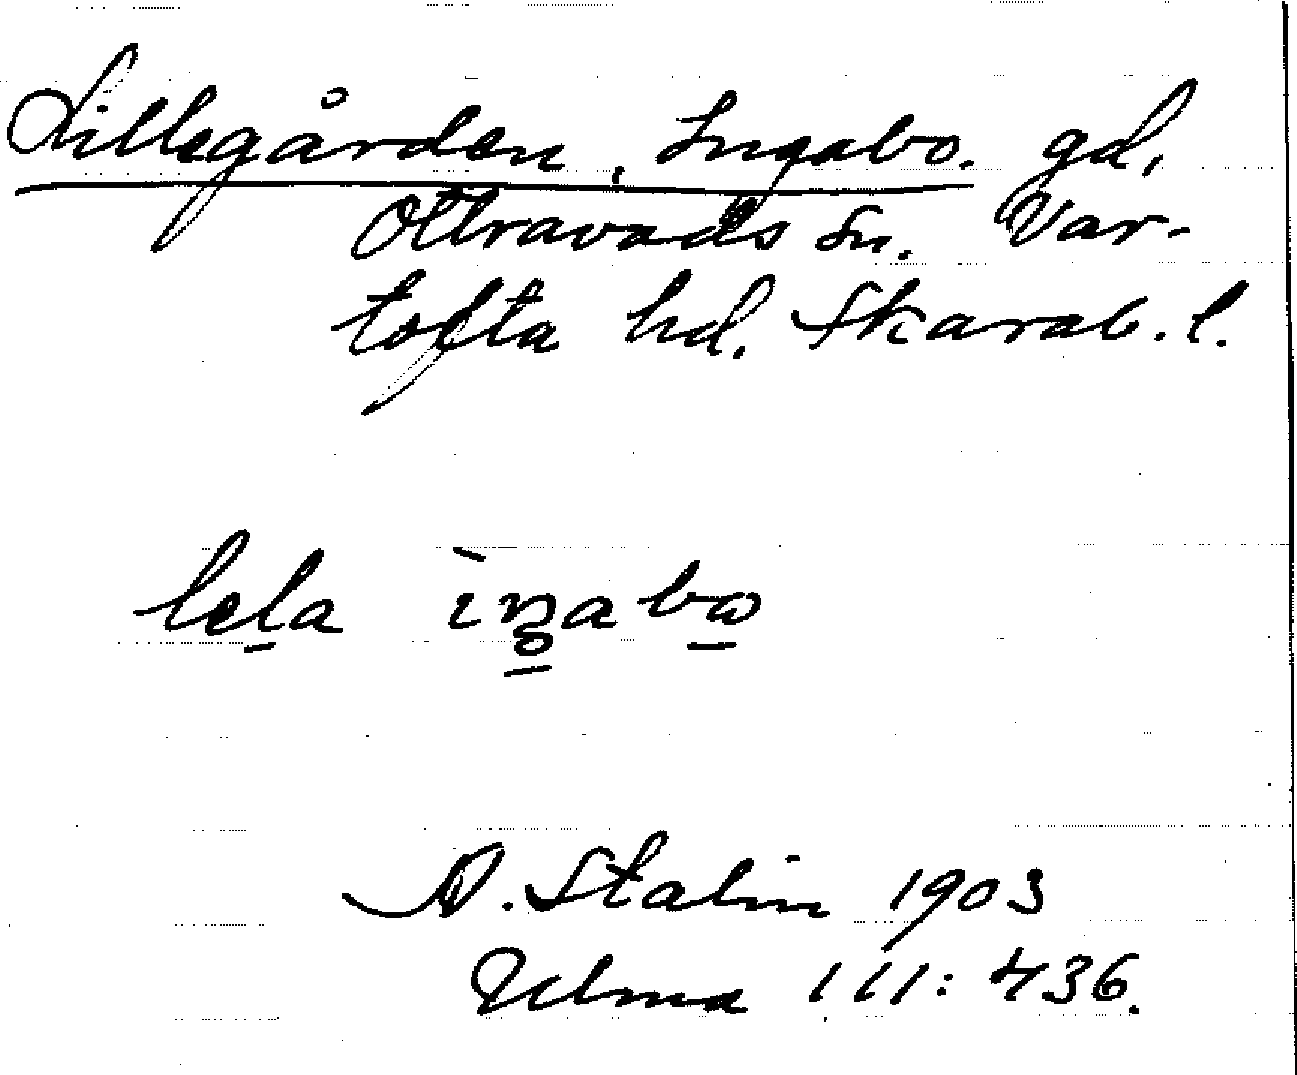 Lillegården, Ingabo. gd,
Ottravads sn. Var-
tofta hd. Skarab. l.
lela ìŋabo
A. Stalin 1903
Ulma 111: 436.